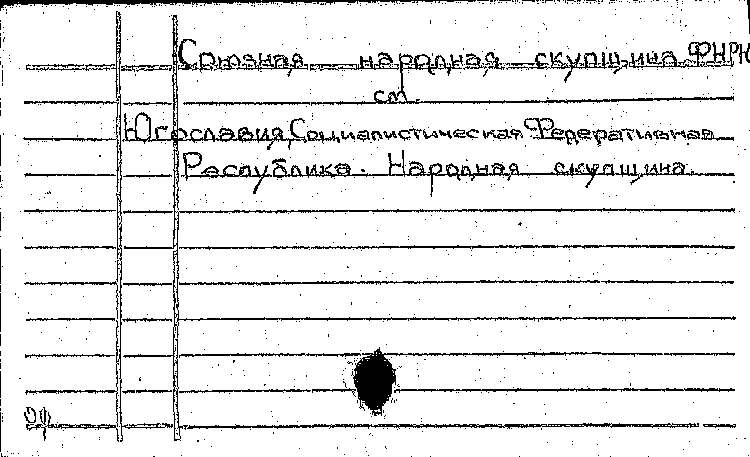 Союзная народная скупщина ФНРЮ
см.
Югославия, Социалистическая Федеративная
Республика. Народная скупщина.